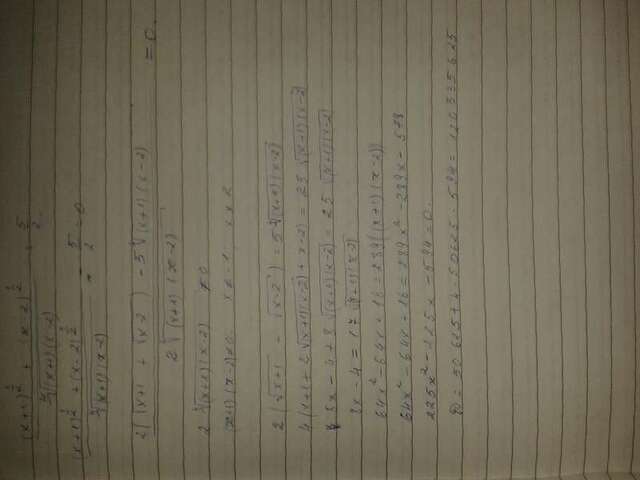 (x+1)^1/2 + (x-2)^1/2 / ⁴√(x+1)(x-2) = 5/2.
(x+1)^1/2 + (x-2)^1/2 / ⁴√(x+1)(x-2) - 5/2 = 0
2(√x+1 + √x-2) - 5⁴√(x+1)(x-2) / 2⁴√(x+1)(x-2) = 0.
2⁴√(x+1)(x-2) ≠ 0
(x+1)(x-2)≠0. x≠-1, x≠2
2(√x+1 - √x-2) = 5⁴√(x+1)(x-2)
4(x+1+2√(x+1)(x-2)+x-2) = 25√(x+1)(x-2)
8x-4+8√(x+1)(x-2) = 25√(x+1)(x-2)
8x-4 = 17√(x+1)(x-2)
64x²-64x+16=289((x+1)(x-2))
64x²-64x-16=289x²-289x-578
225x²-225x-594=0.
D=50625+4·50625·594=120335625